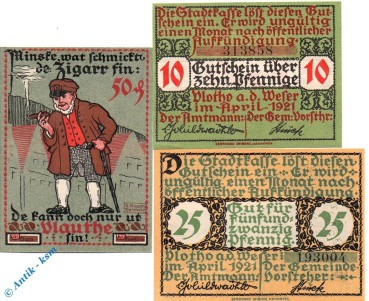 Minske, wat schmickt
de Zigarr fin:
50 ₰
De kann doch nur ut
Vlauthe
sin!
Die Stadtkasse löst diesen Gut-
schein ein. Er wird ungültig
einen Monat nach öffentlicher
Aufkündigung.
313858
10 Gutschein über 10
zehn Pfennige
Vlotho a.d. Weser
im April 1921
Der Amtmann: Der Gem. Vorsthr.
Die Stadtkasse löst diesen
Gutschein ein. Er wird un-
gültig einen Monat nach
öffentlicher Aufkündigung
25 Gut für 25
fünfund-
zwanzig
Pfennig.
193004
Vlotho a.d. Weser
im April 1921 Der Gemeinde
Der Amtmann: Vorsteher:
© Antik - ksm